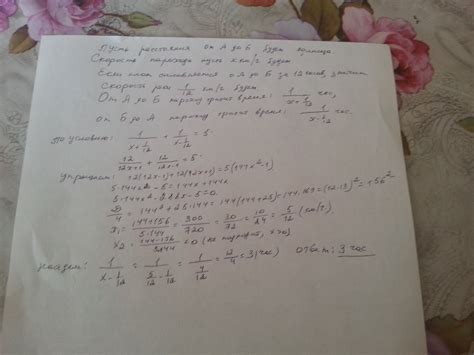 Пусть расстояния от А до Б будет единица.
Скорость парохода пусть х км/ч будет
Если плот сплавляется от А до Б за 12 часов, значит
скорость реки 1/12 км/ч будет.
От А до Б пароход тратит время: 1/(x+1/12) час,
от Б до А пароход тратит время: 1/(x-1/12) час.
По условию: 1/(x+1/12) + 1/(x-1/12) = 5
12/(12x+1) + 12/(12x-1) = 5
Упрощаем: 12(12x-1)+12(12x+1)=5(144x²-1)
5·144x²-5=144x+144x
5·144x²-288x-5=0
D/4 = 144²+25·144=144(144+25)=144·169=(12·13)²=156²
x₁ = (144+156)/(5·144) = 300/720 = 30/72 = 10/24 = 5/12 (км/ч)
x₂ = (144-156)/(5·144) < 0 (не подходит, x>0)
Находим: 1/(x-1/12) = 1/(5/12-1/12) = 1/(4/12) = 12/4 = 3 (час) Ответ: 3 час